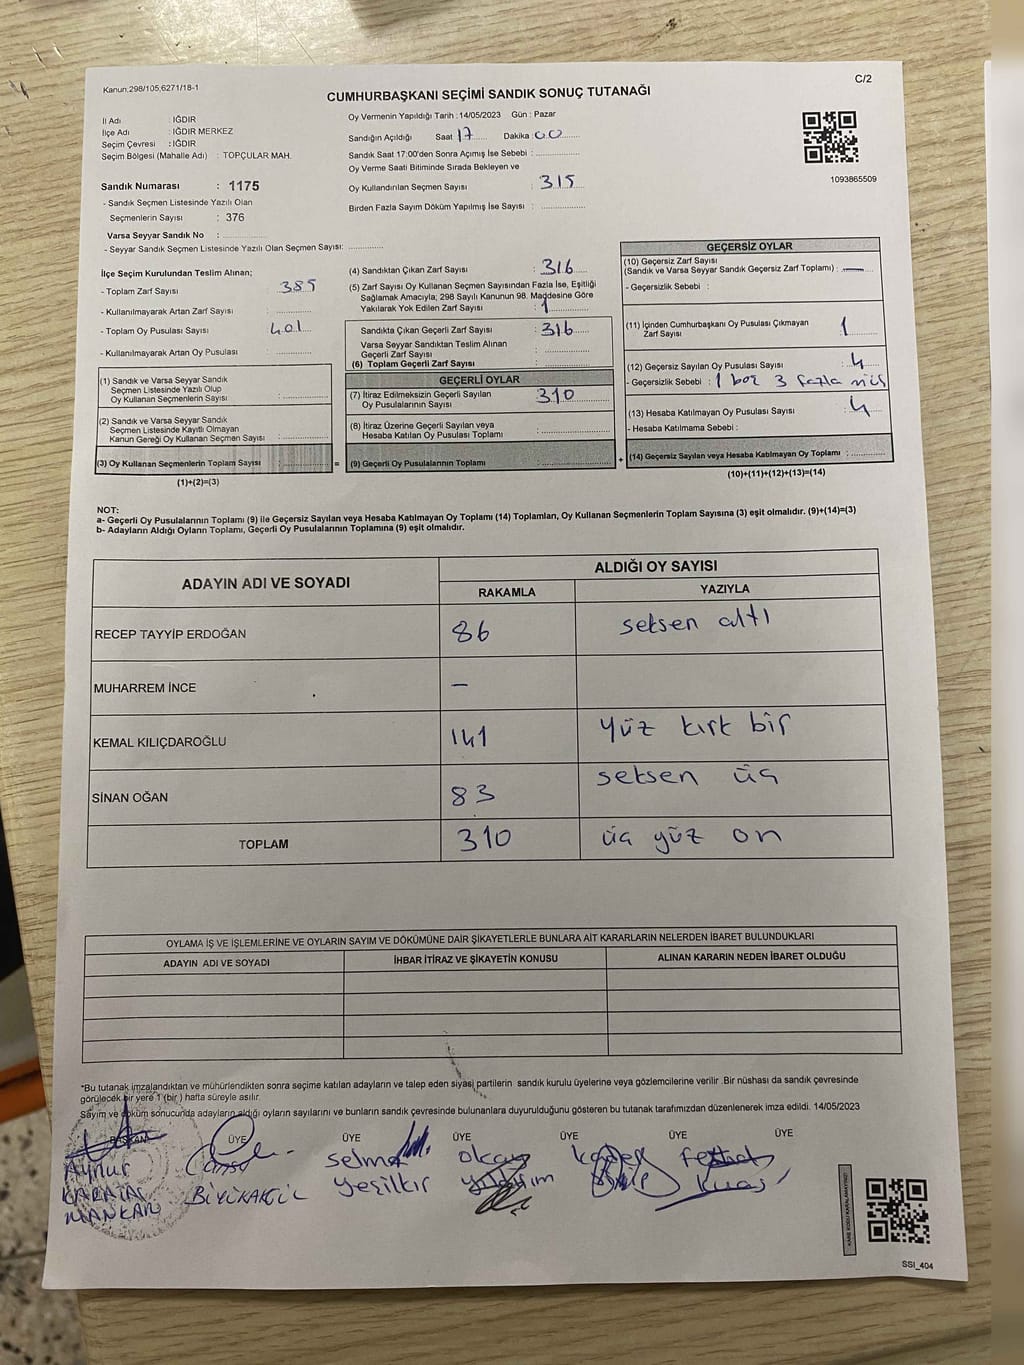 Kanun:298/105;6271/18-1
C/2
CUMHURBAŞKANI SEÇİMİ SANDIK SONUÇ TUTANAĞI
İl Adı : IĞDIR
İlçe Adı : IĞDIR MERKEZ
Seçim Çevresi : IĞDIR
Seçim Bölgesi (Mahalle Adı) : TOPÇULAR MAH.
Oy Vermenin Yapıldığı Tarih : 14/05/2023 Gün : Pazar
Sandığın Açıldığı Saat 17 Dakika 00
Sandık Saat 17:00'den Sonra Açımış İse Sebebi :
Oy Verme Saati Bitiminde Sırada Bekleyen ve
Oy Kullandırılan Seçmen Sayısı : 315
Birden Fazla Sayım Döküm Yapılmış İse Sayısı :
1093865509
Sandık Numarası : 1175
- Sandık Seçmen Listesinde Yazılı Olan
Seçmenlerin Sayısı : 376
Varsa Seyyar Sandık No :
- Seyyar Sandık Seçmen Listesinde Yazılı Olan Seçmen Sayısı:
İlçe Seçim Kurulundan Teslim Alınan;
- Toplam Zarf Sayısı : 385
- Kullanılmayarak Artan Zarf Sayısı :
- Toplam Oy Pusulası Sayısı : 401
- Kullanılmayarak Artan Oy Pusulası :
(1) Sandık ve Varsa Seyyar Sandık
Seçmen Listesinde Yazılı Olup
Oy Kullanan Seçmenlerin Sayısı :
(2) Sandık ve Varsa Seyyar Sandık
Seçmen Listesinde Kayıtlı Olmayan
Kanun Gereği Oy Kullanan Seçmen Sayısı :
(3) Oy Kullanan Seçmenlerin Toplam Sayısı :
(1)+(2)=(3)
(4) Sandıktan Çıkan Zarf Sayısı : 316
(5) Zarf Sayısı Oy Kullanan Seçmen Sayısından Fazla İse, Eşitliği
Sağlamak Amacıyla; 298 Sayılı Kanunun 98. Maddesine Göre
Yakılarak Yok Edilen Zarf Sayısı : 1
Sandıkta Çıkan Geçerli Zarf Sayısı : 316
Varsa Seyyar Sandıktan Teslim Alınan
Geçerli Zarf Sayısı :
(6) Toplam Geçerli Zarf Sayısı :
GEÇERLİ OYLAR
(7) İtiraz Edilmeksizin Geçerli Sayılan
Oy Pusulalarının Sayısı : 310
(8) İtiraz Üzerine Geçerli Sayılan veya
Hesaba Katılan Oy Pusulası Toplamı :
= (9) Geçerli Oy Pusulalarının Toplamı :
GEÇERSİZ OYLAR
(10) Geçersiz Zarf Sayısı
(Sandık ve Varsa Seyyar Sandık Geçersiz Zarf Toplamı) : —
- Geçersizlik Sebebi :
(11) İçinden Cumhurbaşkanı Oy Pusulası Çıkmayan
Zarf Sayısı : 1
(12) Geçersiz Sayılan Oy Pusulası Sayısı : 4
- Geçersizlik Sebebi : 1 boş 3 fazla
(13) Hesaba Katılmayan Oy Pusulası Sayısı : 4
- Hesaba Katılmama Sebebi :
+ (14) Geçersiz Sayılan veya Hesaba Katılmayan Oy Toplamı :
(10)+(11)+(12)+(13)=(14)
NOT:
a- Geçerli Oy Pusulalarının Toplamı (9) ile Geçersiz Sayılan veya Hesaba Katılmayan Oy Toplamı (14) Toplamları, Oy Kullanan Seçmenlerin Toplam Sayısına (3) eşit olmalıdır. (9)+(14)=(3)
b- Adayların Aldığı Oyların Toplamı, Geçerli Oy Pusulalarının Toplamına (9) eşit olmalıdır.
ADAYIN ADI VE SOYADI
ALDIĞI OY SAYISI
RAKAMLA YAZIYLA
RECEP TAYYİP ERDOĞAN 86 seksen altı
MUHARREM İNCE —
KEMAL KILIÇDAROĞLU 141 yüz kırk bir
SİNAN OĞAN 83 seksen üç
TOPLAM 310 üç yüz on
OYLAMA İŞ VE İŞLEMLERİNE VE OYLARIN SAYIM VE DÖKÜMÜNE DAİR ŞİKAYETLERLE BUNLARA AİT KARARLARIN NELERDEN İBARET BULUNDUKLARI
ADAYIN ADI VE SOYADI İHBAR İTİRAZ VE ŞİKAYETİN KONUSU ALINAN KARARIN NEDEN İBARET OLDUĞU
*Bu tutanak imzalandıktan ve mühürlendikten sonra seçime katılan adayların ve talep eden siyasi partilerin sandık kurulu üyelerine veya gözlemcilerine verilir .Bir nüshası da sandık çevresinde
görülecek bir yere 1 (bir ) hafta süreyle asılır.
Sayım ve döküm sonucunda adayların aldığı oyların sayılarını ve bunların sandık çevresinde bulunanlara duyurulduğunu gösteren bu tutanak tarafımızdan düzenlenerek imza edildi. 14/05/2023
BAŞKAN ÜYE ÜYE ÜYE ÜYE ÜYE ÜYE
Aynur Selma Okay
Yeşilkır
SSI_404